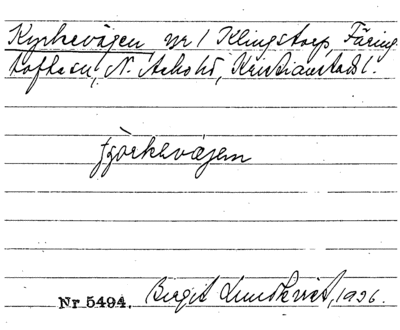 Kyrkevägen nr 1 Klingstorp, Färing
toftasn, N. Åsbohd, Kristianstads l.
Nr 5494. Birgit Lundkvist, 1926.